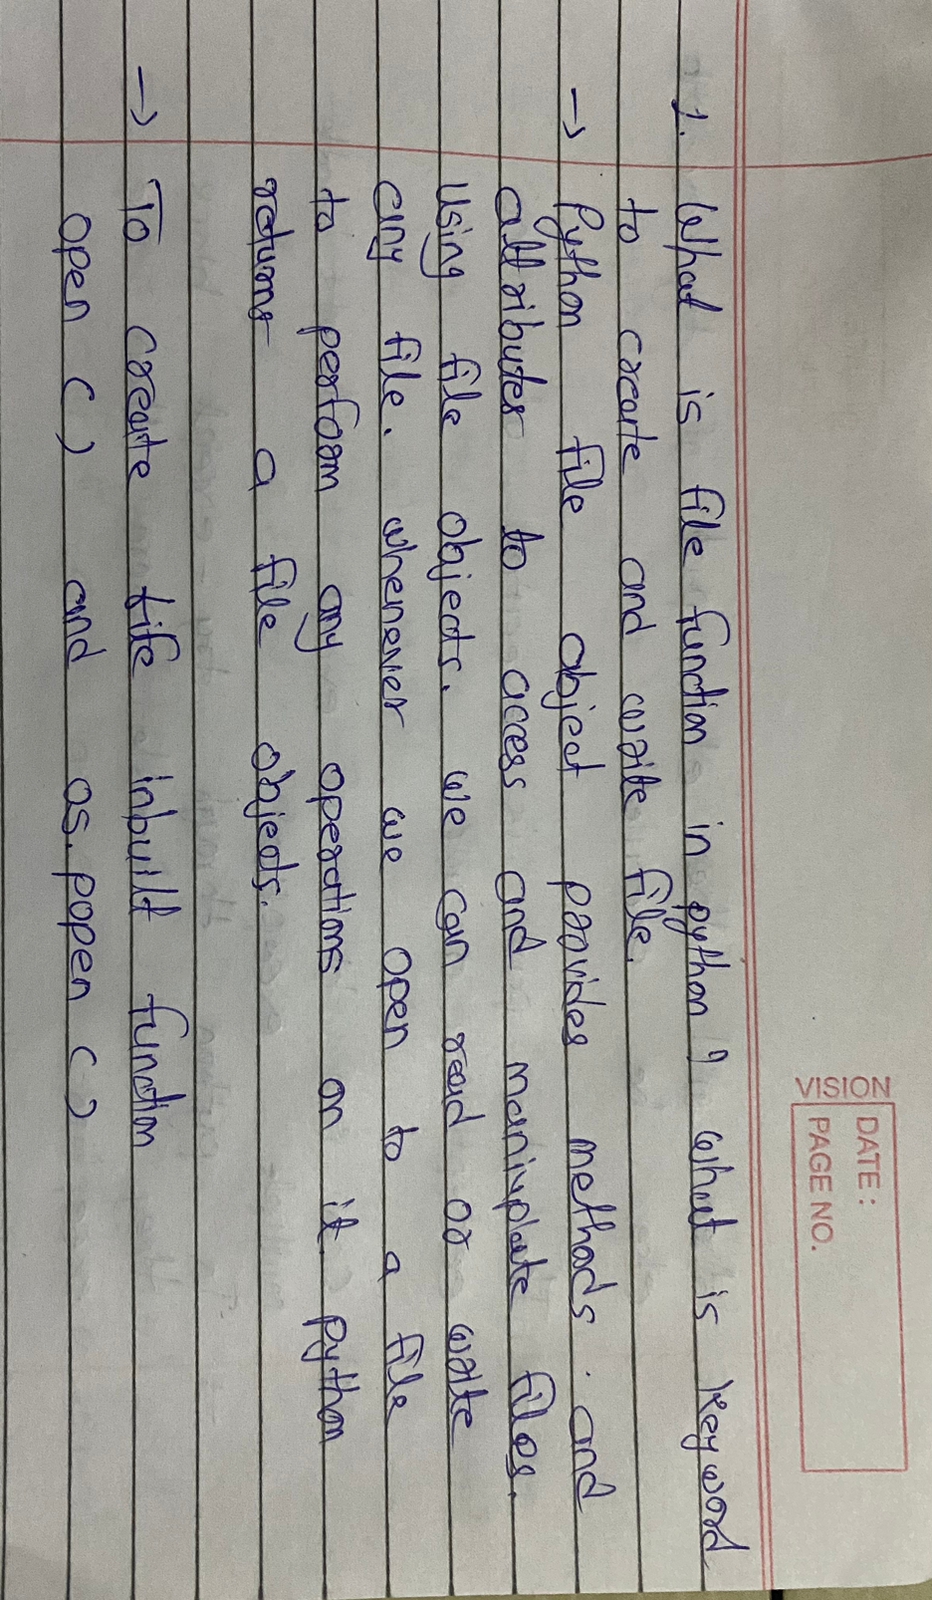 VISION
DATE:
PAGE NO.
1. What is file function in python? what is keyword
to create and write file.
→ Python file object provides methods. and
attributes to access and maniuplate files.
Using file objects. we can read or write
any file. whenever we open to a file
to perform any operations on it. python
returns a file objects.
→ To create file inbuilt function
open () and os.popen ()